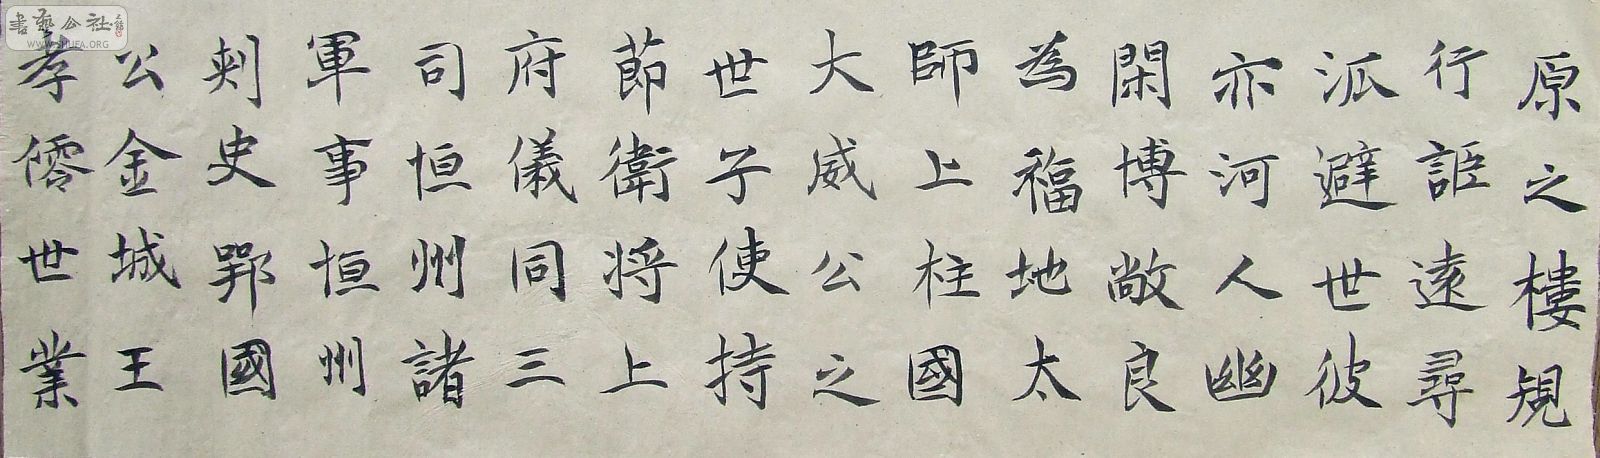 原之樓規
行詎遠尋
泒避世彼
亦河人幽
閑博敞良
為福地太
師上柱國
大威公之
世子使持
節衛將上
府儀同三
司恒州諸
軍事恒州
刺史鄂國
公金城王
孝僊世業
書藝公社
WWW.SHUFA.ORG